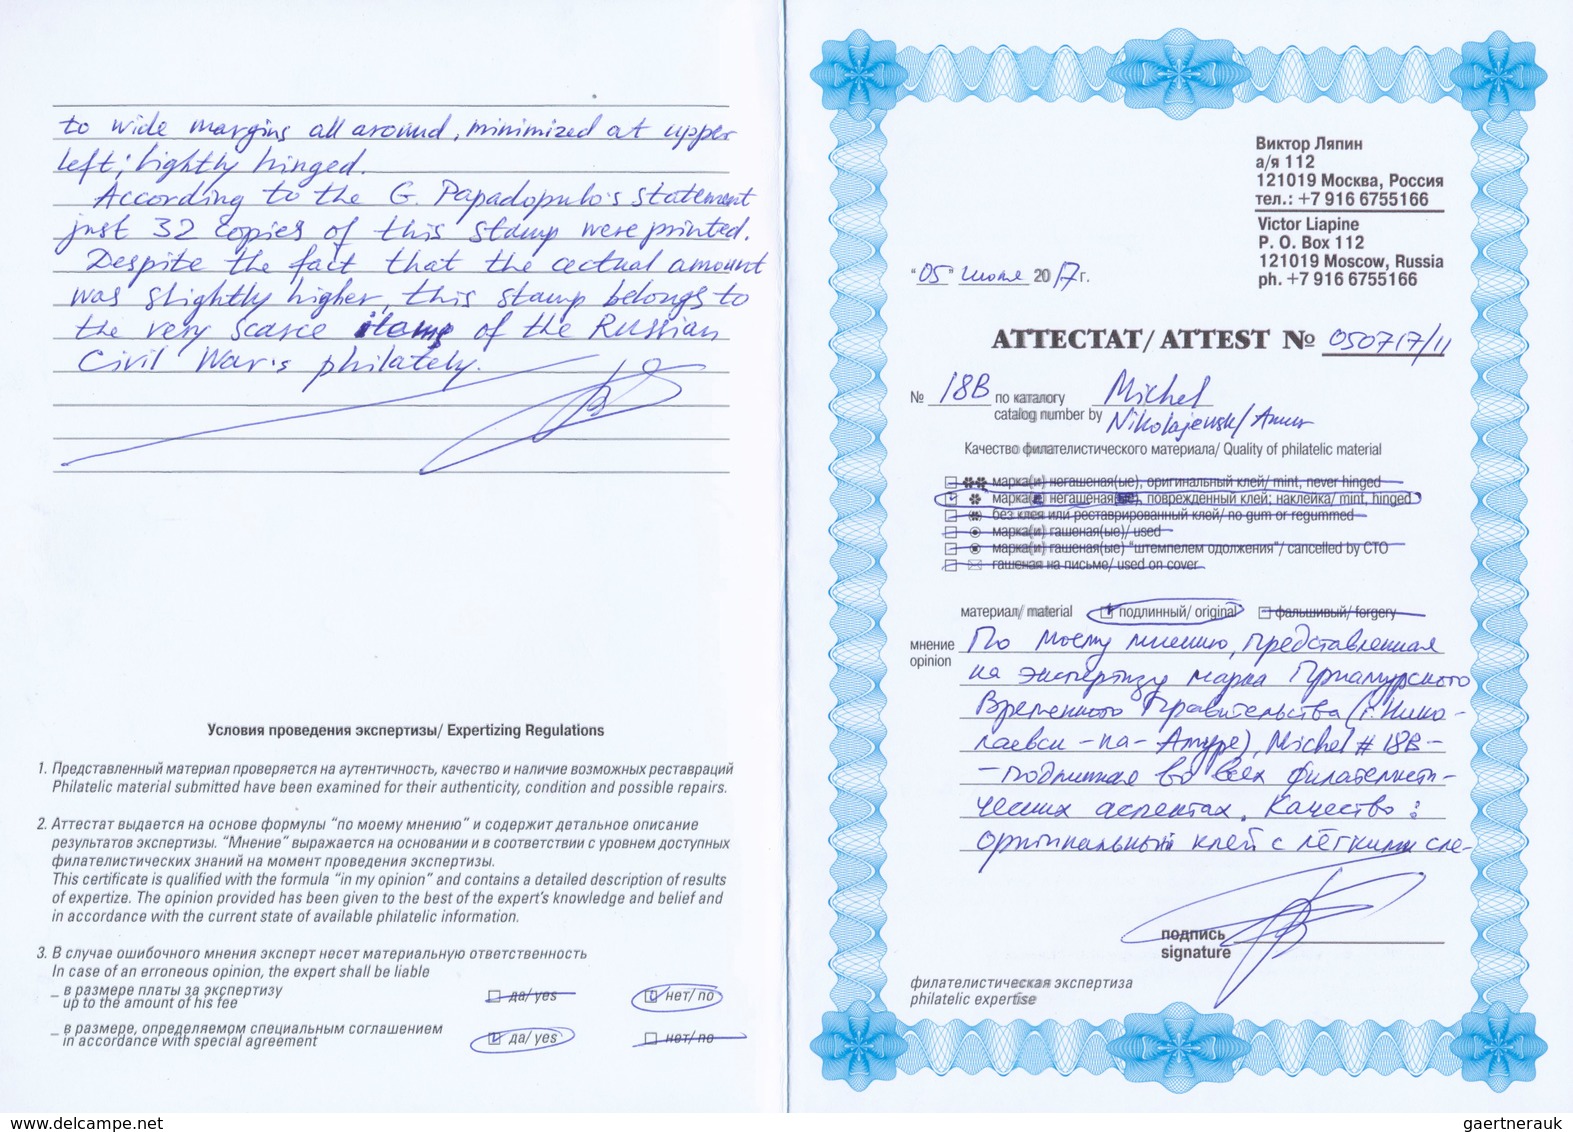 to wide margins all around, minimized at upper
left; lightly hinged.
According to the G. Papadopulo's statement
just 32 copies of this stamp were printed.
Despite the fact that the actual amount
was slightly higher, this stamp belongs to
the very scarce items of the Russian
Civil War's philately.
Условия проведения экспертизы/ Expertizing Regulations
1. Представленный материал проверяется на аутентичность, качество и наличие возможных реставраций
Philatelic material submitted have been examined for their authenticity, condition and possible repairs.
2. Аттестат выдается на основе формулы “по моему мнению” и содержит детальное описание
результатов экспертизы. “Мнение” выражается на основании и в соответствии с уровнем доступных
филателистических знаний на момент проведения экспертизы.
This certificate is qualified with the formula “in my opinion” and contains a detailed description of results
of expertize. The opinion provided has been given to the best of the expert's knowledge and belief and
in accordance with the current state of available philatelic information.
3. В случае ошибочного мнения эксперт несет материальную ответственность
In case of an erroneous opinion, the expert shall be liable
– в размере платы за экспертизу
up to the amount of his fee
да/ yes нет/ no
– в размере, определяемом специальным соглашением
in accordance with special agreement
да/ yes нет/ no
Виктор Ляпин
а/я 112
121019 Москва, Россия
тел.: +7 916 6755166
Victor Liapine
P. O. Box 112
121019 Moscow, Russia
ph. +7 916 6755166
"05" 2017г.
АТТЕСТАТ/ ATTEST № 050717/11
№ 18B по каталогу Michel
catalog number by Nikolajewsk/Amur
Качество филателистического материала/ Quality of philatelic material
марка(и) негашеная(ые), оригинальный клей/ mint, never hinged
марка негашеная, поврежденный клей; наклейка/ mint, hinged
без клея или реставрированный клей/ no gum or regummed
марка(и) гашеная(ые)/ used
марка(и) гашеная(ые) "штемпелем одолжения"/ cancelled by CTO
гашеная на письме/ used on cover
материал/ material подлинный/ original фальшивый/ forgery
мнение По моему мнению, представленная
opinion
на экспертизу марка Приамурского
Временного Правительства (г. Нико-
лаевск-на-Амуре), Michel # 18B -
- подлинная во всех филателисти-
ческих аспектах. Качество:
оригинальный клей с лёгкими сле-
подпись
signature
филателистическая экспертиза
philatelic expertise
www.delcampe.net
gaertnerauk